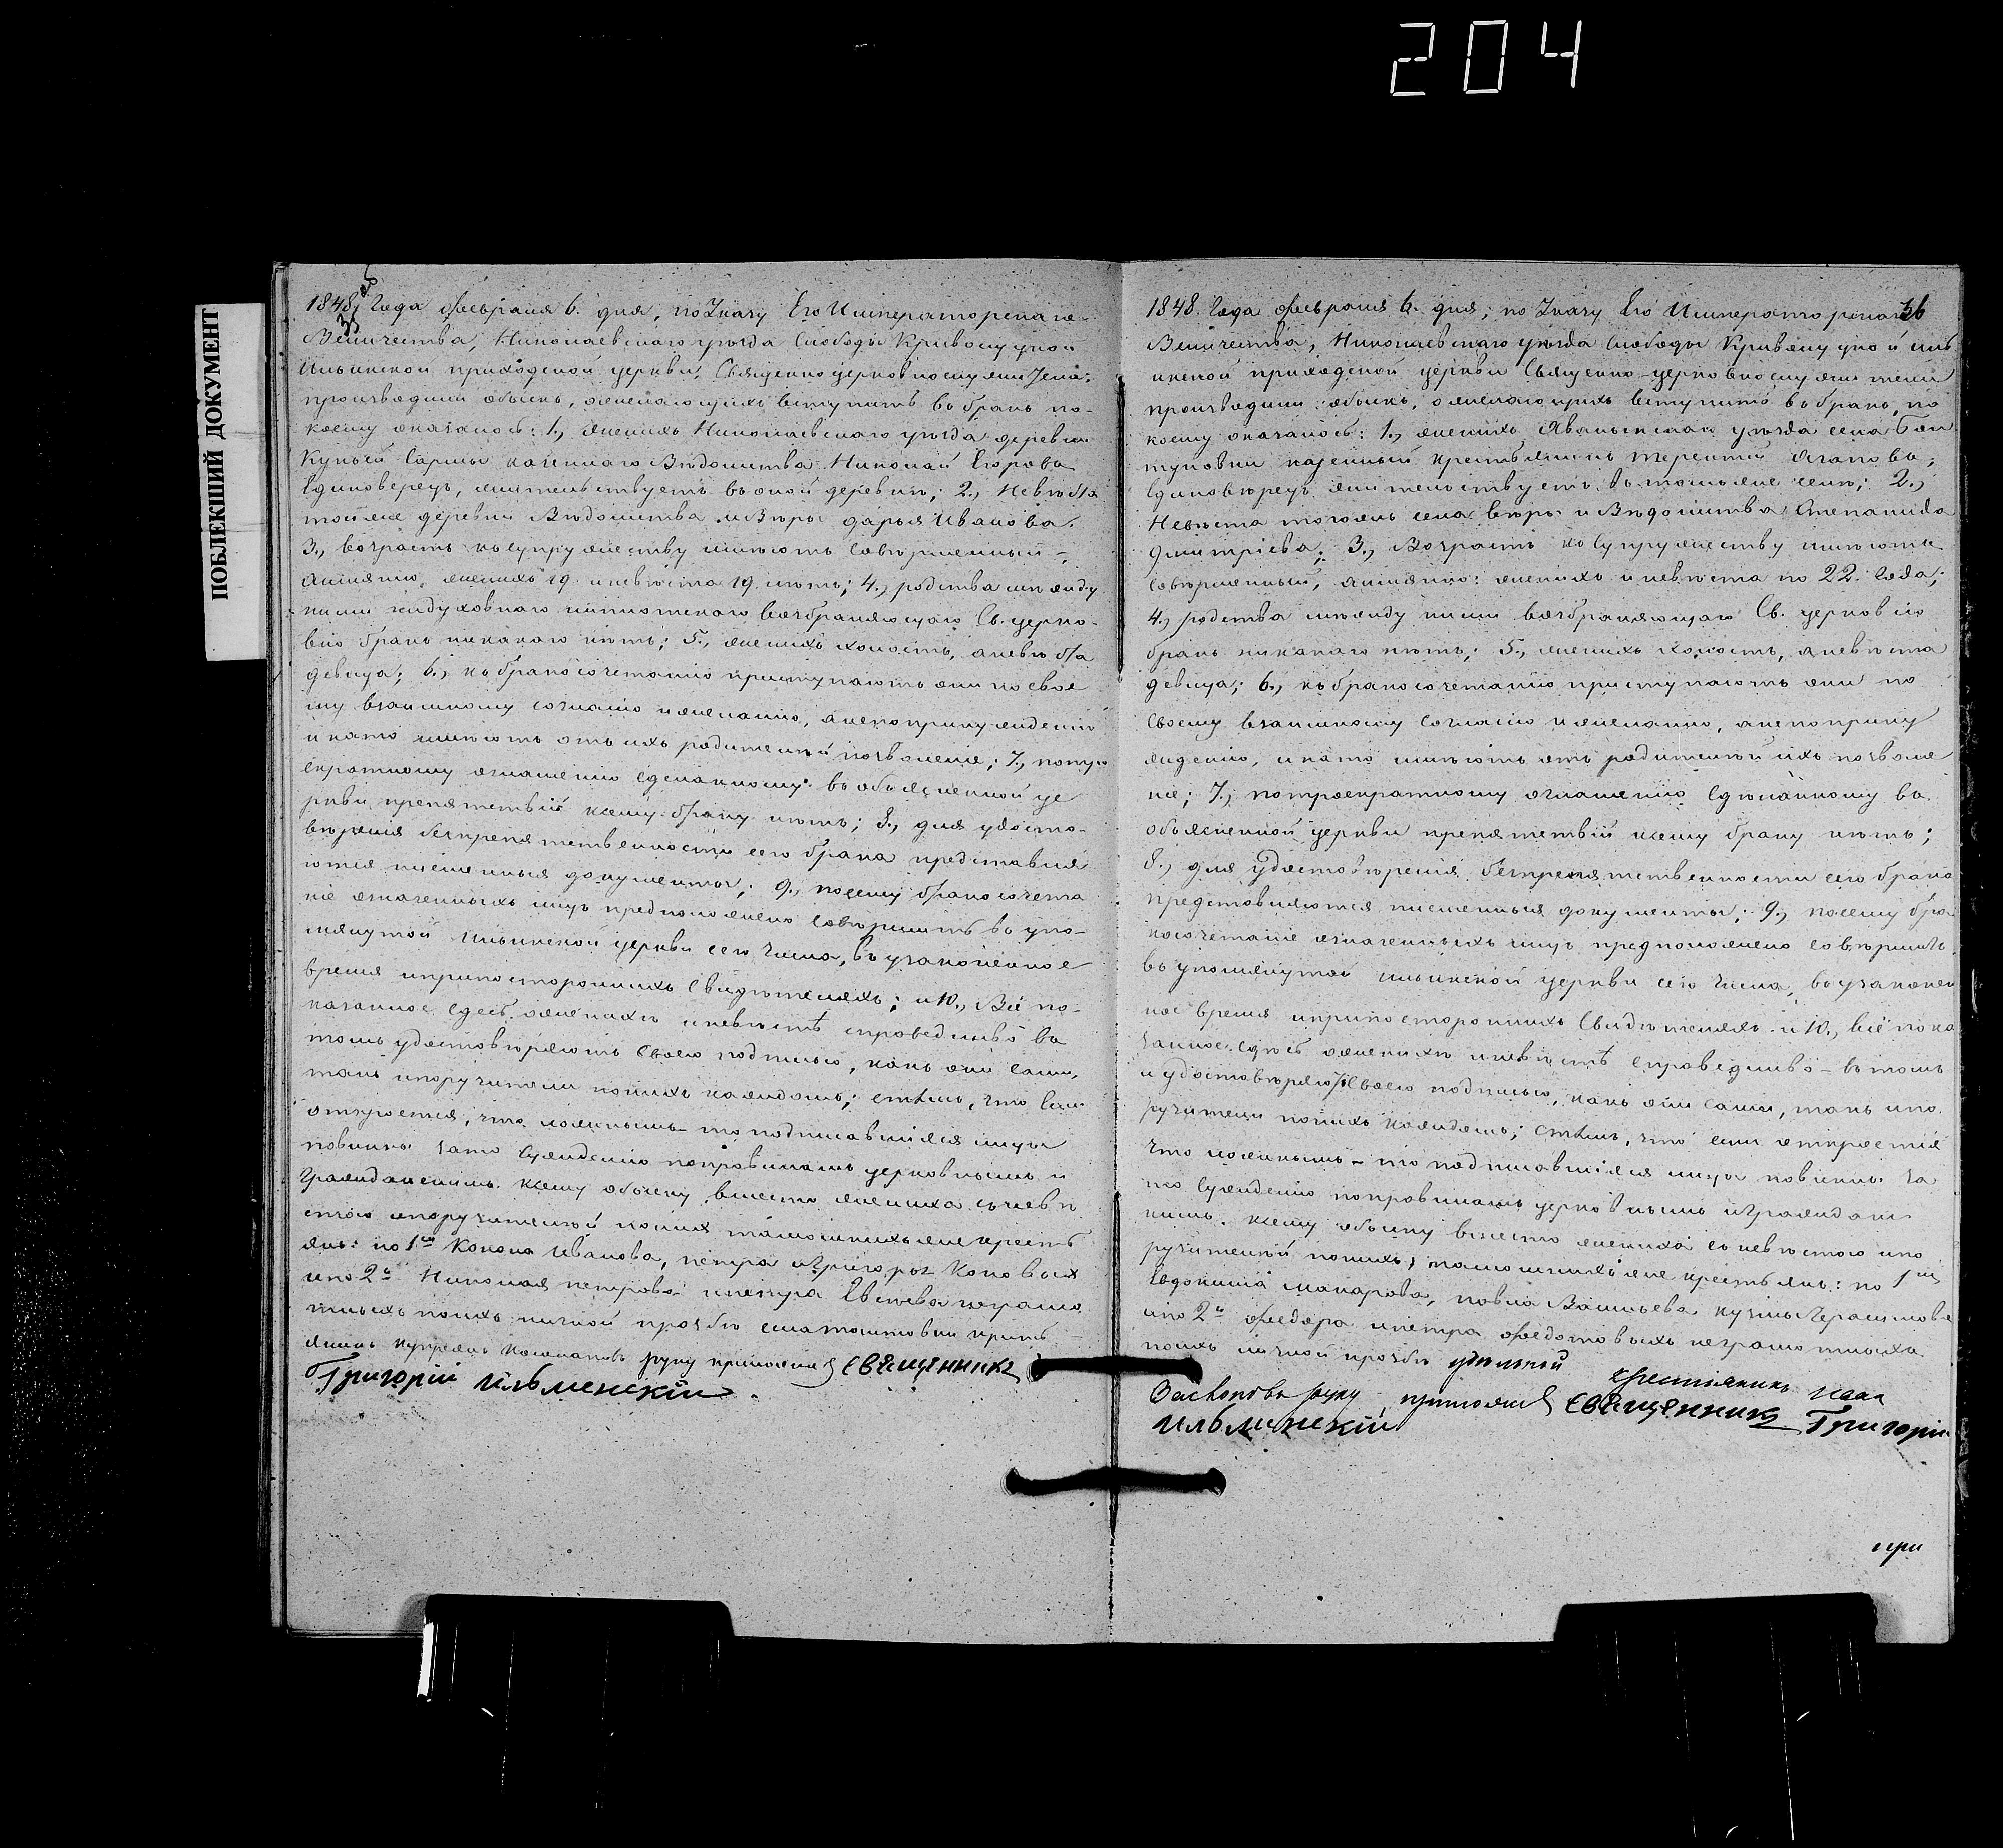 204
ПОБЛЕКШИЙ ДОКУМЕНТ
35
1848 Года февраля 6. дня, по Указу Его Императорскаго
Величества, Николаевскаго уѣзда Слободы Криволуцкой
Ильинской приходской церкви, Священноцерковнослужители
производили обыскъ, о желающихъ вступить въ бракъ, по
коему оказалось: 1., женихъ Николаевскаго уѣзда деревни
Кузьей Сармы казеннаго Вѣдомства Николай Егоровъ
Единоверецъ, жительствуетъ въ оной деревнѣ; 2., Невѣста
тойже деревни Вѣдомства и Вѣры Дарья Иванова.
3., возрастъ къ супружеству имѣютъ совершенный,
а именно, женихъ 19. и невѣста 19. лѣтъ; 4., родства между
ними ни духовнаго ни плотскаго возбраняющаго Св. церко-
вію бракъ никакого нѣтъ; 5., женихъ холостъ, а невѣста
девица; 6., къ бракосочетанію приступаютъ они по свое
му взаимному согласію и желанію, а не по принужденію
и на то имѣютъ отъ ихъ родителей позволеніе; 7., по трое
кратному оглашенію сделанному въ объясненной це
ркви препятствій к сему браку нѣтъ; 8., для удосто-
вѣренія безпрепятственности сего брака представля
ются письменныя документы; 9., посему бракосочета
ніе означенныхъ лицъ предположено совершить въ упо-
мянутой Ильинской церкви сего числа, въ узаконенное
время и при постороннихъ свидѣтеляхъ; и 10., Всё по-
казанное здесь о женихѣ и невѣстѣ справедливо въ
томъ удостовѣряютъ своею подписью, какъ они сами,
такъ и поручители по нихъ каждомъ; стѣмъ, что если
откроется, что ложнымъ — то подписавшіяся лицы
повинны за то Сужденію по правиламъ церковнымъ и
Гражданскимъ. К сему обыску вместо жениха съ невѣ
стою и поручителей по нихъ тамошнихъ же кресть
янъ: по 1мъ Конона Иванова, петра и Григорья Коновых
и по 2й Николая петрова и петра Евсеева неграмо
тныхъ по ихъ личной прозбѣ
руку приложилъ Священникъ
Григорій Ильменскій.
36
1848 Года февраля 6. дня; по Указу Его Императорскаго
Величества, Николаевскаго уѣзда Слободы Криволуцкой Иль
инской приходской церкви Священно-церковнослужители
производили обыскъ, о желающихъ вступить въ бракъ, по
коему оказалось: 1., женихъ Хвалынскаго уѣзда села
казенный крестьянинъ терентій Агаповъ,
Единовѣрецъ жительствуетъ въ томъ же селѣ; 2.,
Невѣста тогожъ села вѣры и Вѣдомства Степанида
Дмитріева; 3., Возрастъ къ Супружеству имѣютъ
совершенный, а именно: женихъ и невѣста по 22. Года;
4., родства между ними возбраняющаго Св. церковію
бракъ никакого нѣтъ; 5., женихъ холостъ, а невѣста
девица; 6., къ бракосочетанію приступаютъ они по
своему взаимному согласію и желанію, а не по прину
жденію, и на то имѣютъ отъ родителей ихъ позволе
ніе; 7., по троекратному оглашенію сдѣланному въ
объясненной церкви препятствій к сему браку нѣтъ;
8., для удостовѣренія безпрепятственности сего брака
представляются письменныя документы; 9., посему бра
косочетаніе означенныхъ лицъ предположено совершить
въ упомянутой Ильинской церкви сего числа, въ узаконен
ное время и при постороннихъ Свидѣтеляхъ. и 10., всё пока
занное здѣсь о женихѣ и невѣстѣ справедливо — въ томъ
и удостовѣряютъ своею подписью, какъ они сами, такъ и по
ручители по нихъ каждомъ; стѣмъ, что если откроется
что ложнымъ — то подписавшіяся лицы повинны за
то Сужденію по правиламъ церковнымъ и Граждан
скимъ. К сему обыску вместо жениха съ невѣстою и по
ручителей по нихъ, тамошнихъ же крестьянъ: по 1мъ
Евдокима Макарова, павла Васильева кузмы Герасимова
и по 2й федора и петра федотовыхъ неграмотныхъ
по ихъ личной прозбѣ удельной крестьянинъ
руку приложилъ Священникъ Григорій
Ильменскій